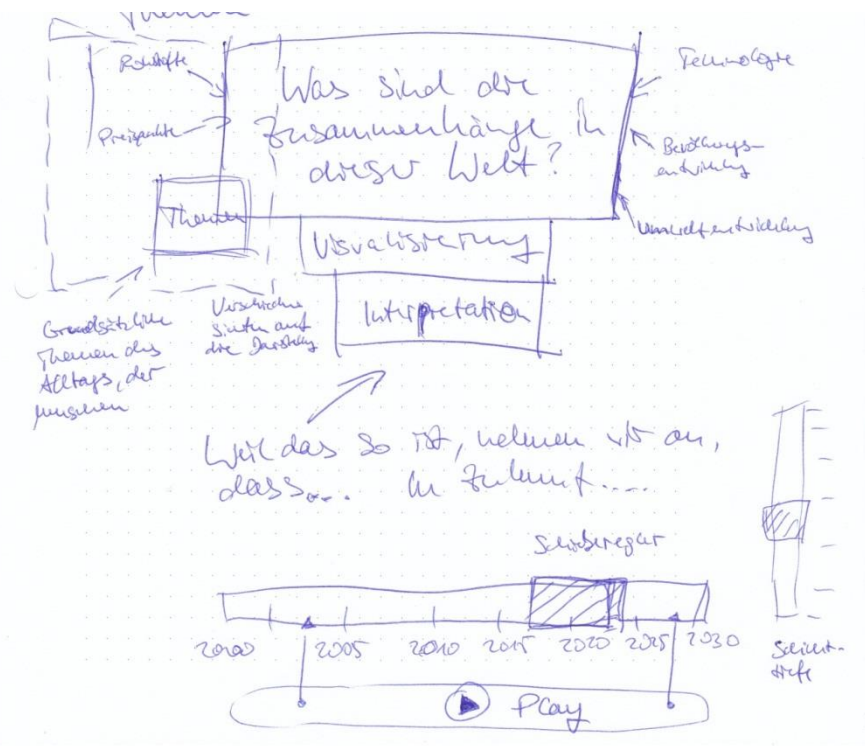 Themen
Rohstoffe
Preispunkte
Was sind die
Zusammenhänge in
dieser Welt?
Technologie
Bevölkerungs-
entwicklung
Umweltentwicklung
Themen
Visualisierung
Interpretation
Grundsätzliche
Themen des
Alltags, der
Menschen
Verschiedene
Sichten auf
die Darstellung
Weil das so ist, nehmen wir an,
dass.... In Zukunft.....
Schieberegler
2000 2005 2010 2015 2020 2025 2030
Schicht-
tiefe
Play